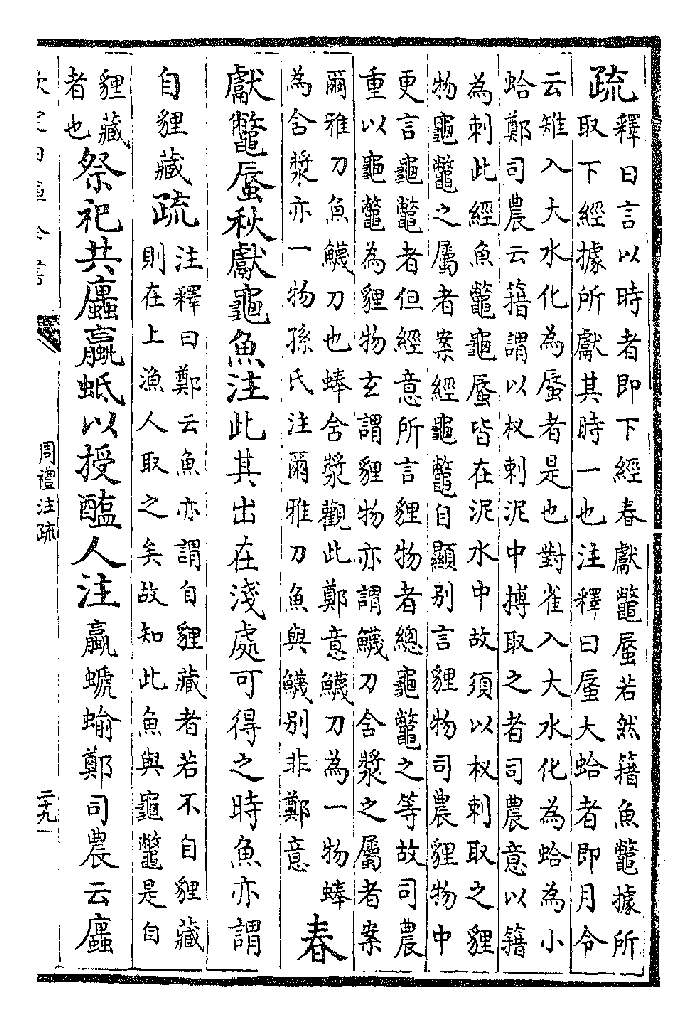 疏釋曰言以時者即下經春獻鼈蜃若然籍魚鼈據所
取下經據所獻其時一也注釋曰蜃大蛤者即月令
云雉入大水化為蜃者是也對雀入大水化為蛤為小
蛤鄭司農云籍謂以杈刺泥中搏取之者司農意以籍
為刺此經魚鼈龜蜃皆在泥水中故須以杈刺取之貍
物龜鼈之屬者案經龜鼈自顯別言貍物司農貍物中
更言龜鼈者但經意所言貍物者總龜鼈之等故司農
重以龜鼈為貍物玄謂貍物亦謂鱴刀含漿之屬者案
爾雅刀魚鱴刀也蜯含漿觀此鄭意鱴刀為一物蜯
為含漿亦一物孫氏注爾雅刀魚與鱴別非鄭意
春
獻鼈蜃秋獻龜魚注此其出在淺處可得之時魚亦謂
自貍藏疏注釋曰鄭云魚亦謂自貍藏者若不自貍藏
則在上漁人取之矣故知此魚與龜鼈是自
貍藏
者也
祭祀共蠯蠃蚳以授醢人注蠃螔蝓鄭司農云蠯
周禮注疏